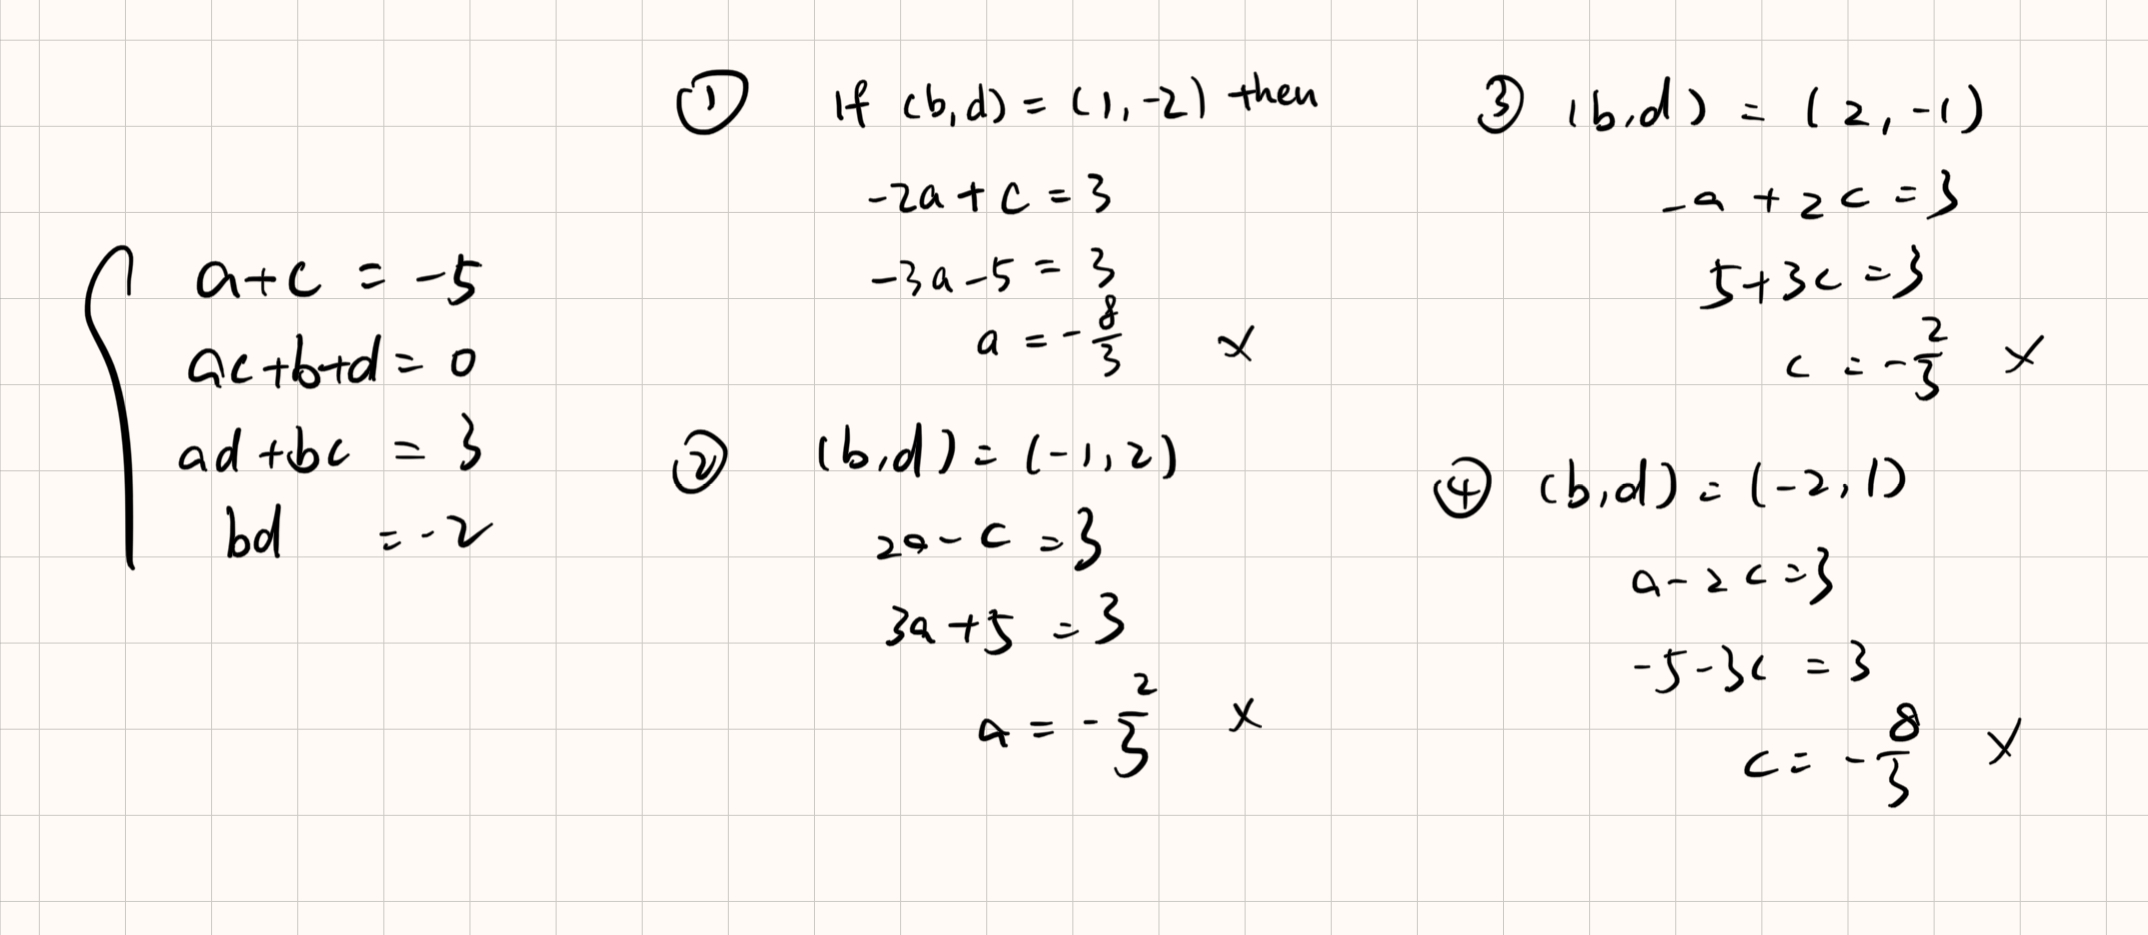 a+c = -5
ac+b+d = 0
ad+bc = 3
bd = -2
① If (b,d) = (1,-2) then
-2a+c = 3
-3a-5 = 3
a = -8/3 ×
② (b,d) = (-1,2)
2a-c = 3
3a+5 = 3
a = -2/3 ×
③ (b,d) = (2,-1)
-a+2c = 3
5+3c = 3
c = -2/3 ×
④ (b,d) = (-2,1)
a-2c = 3
-5-3c = 3
c = -8/3 ×